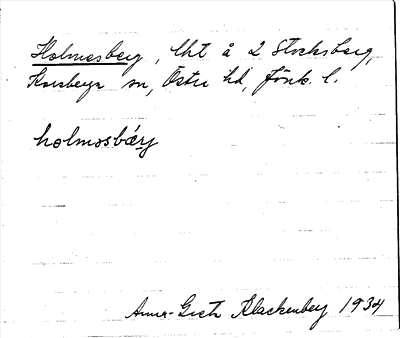 Holmesberg, lht å 2 Stocksberg,
Korsberga sn, Östra hd, Jönk. l.
holmosbærj
Anna-Greta Klackenberg 1934